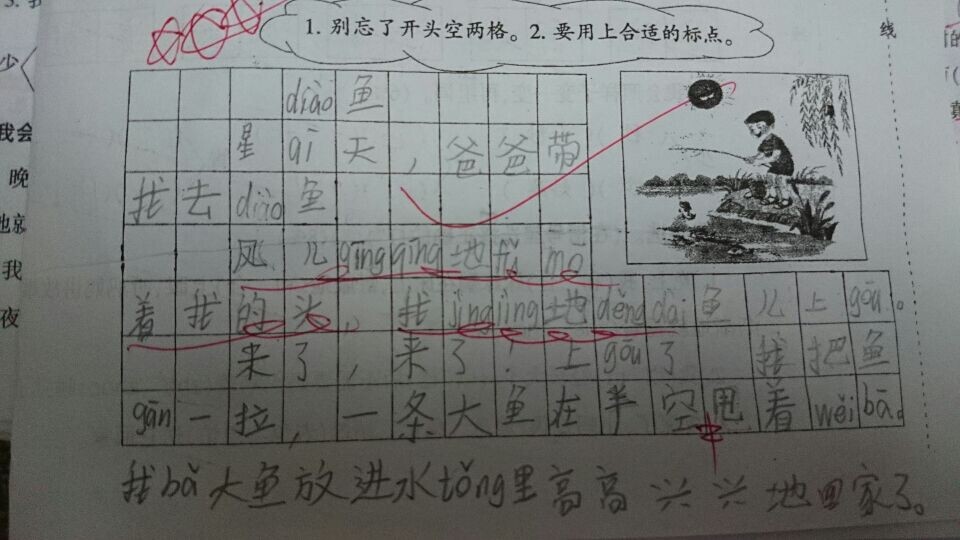 1. 别忘了开头空两格。2. 要用上合适的标点。
线
少
我会
晚
我
夜
diào鱼
星qī天，爸爸带
我去diào鱼
风儿qīngqīng地fǔ mō
着我的头，我jìngjìng地děngdài鱼儿上gōu。
来了，来了！上gōu了 我把鱼
gān一拉，一条大鱼在半空甩着wěibā。
我bǎ大鱼放进水tǒng里高高兴兴地回家了。